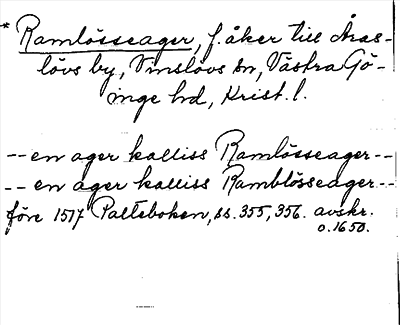 * Ramlösseager, f. åker till Åras-
lövs by, Vinslövs sn, Västra Gö-
inge hd, Krist. l.
-- en ager kalliss Ramlösseager --
-- en ager kalliss Ramblösseager --
före 1517 Palteboken, ss. 355, 356. avskr.
o. 1650.